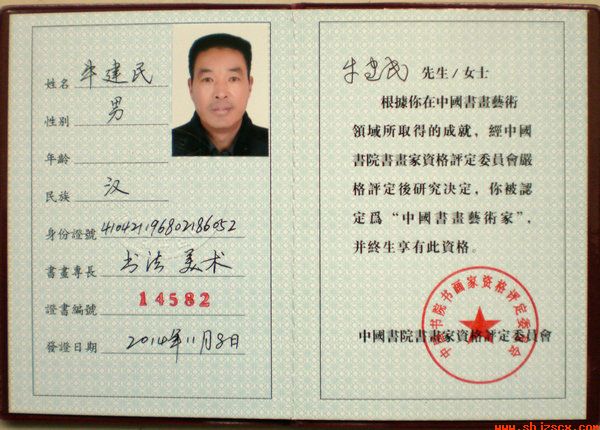 姓名 牛建民
性别 男
年龄
民族 汉
身份證號 410421196802186052
書畫專長 书法 美术
證書编號 14582
發證日期 2014年11月8日
牛建民 先生/女士
根據你在中國書畫藝術
領域所取得的成就，經中國
書院書畫家資格評定委員會嚴
格評定後研究决定，你被認
定爲“中國書畫藝術家”，
并終生享有此資格。
中国书院书画家资格评定委员会
中國書院書畫家資格評定委員會
www.shjzscx.com